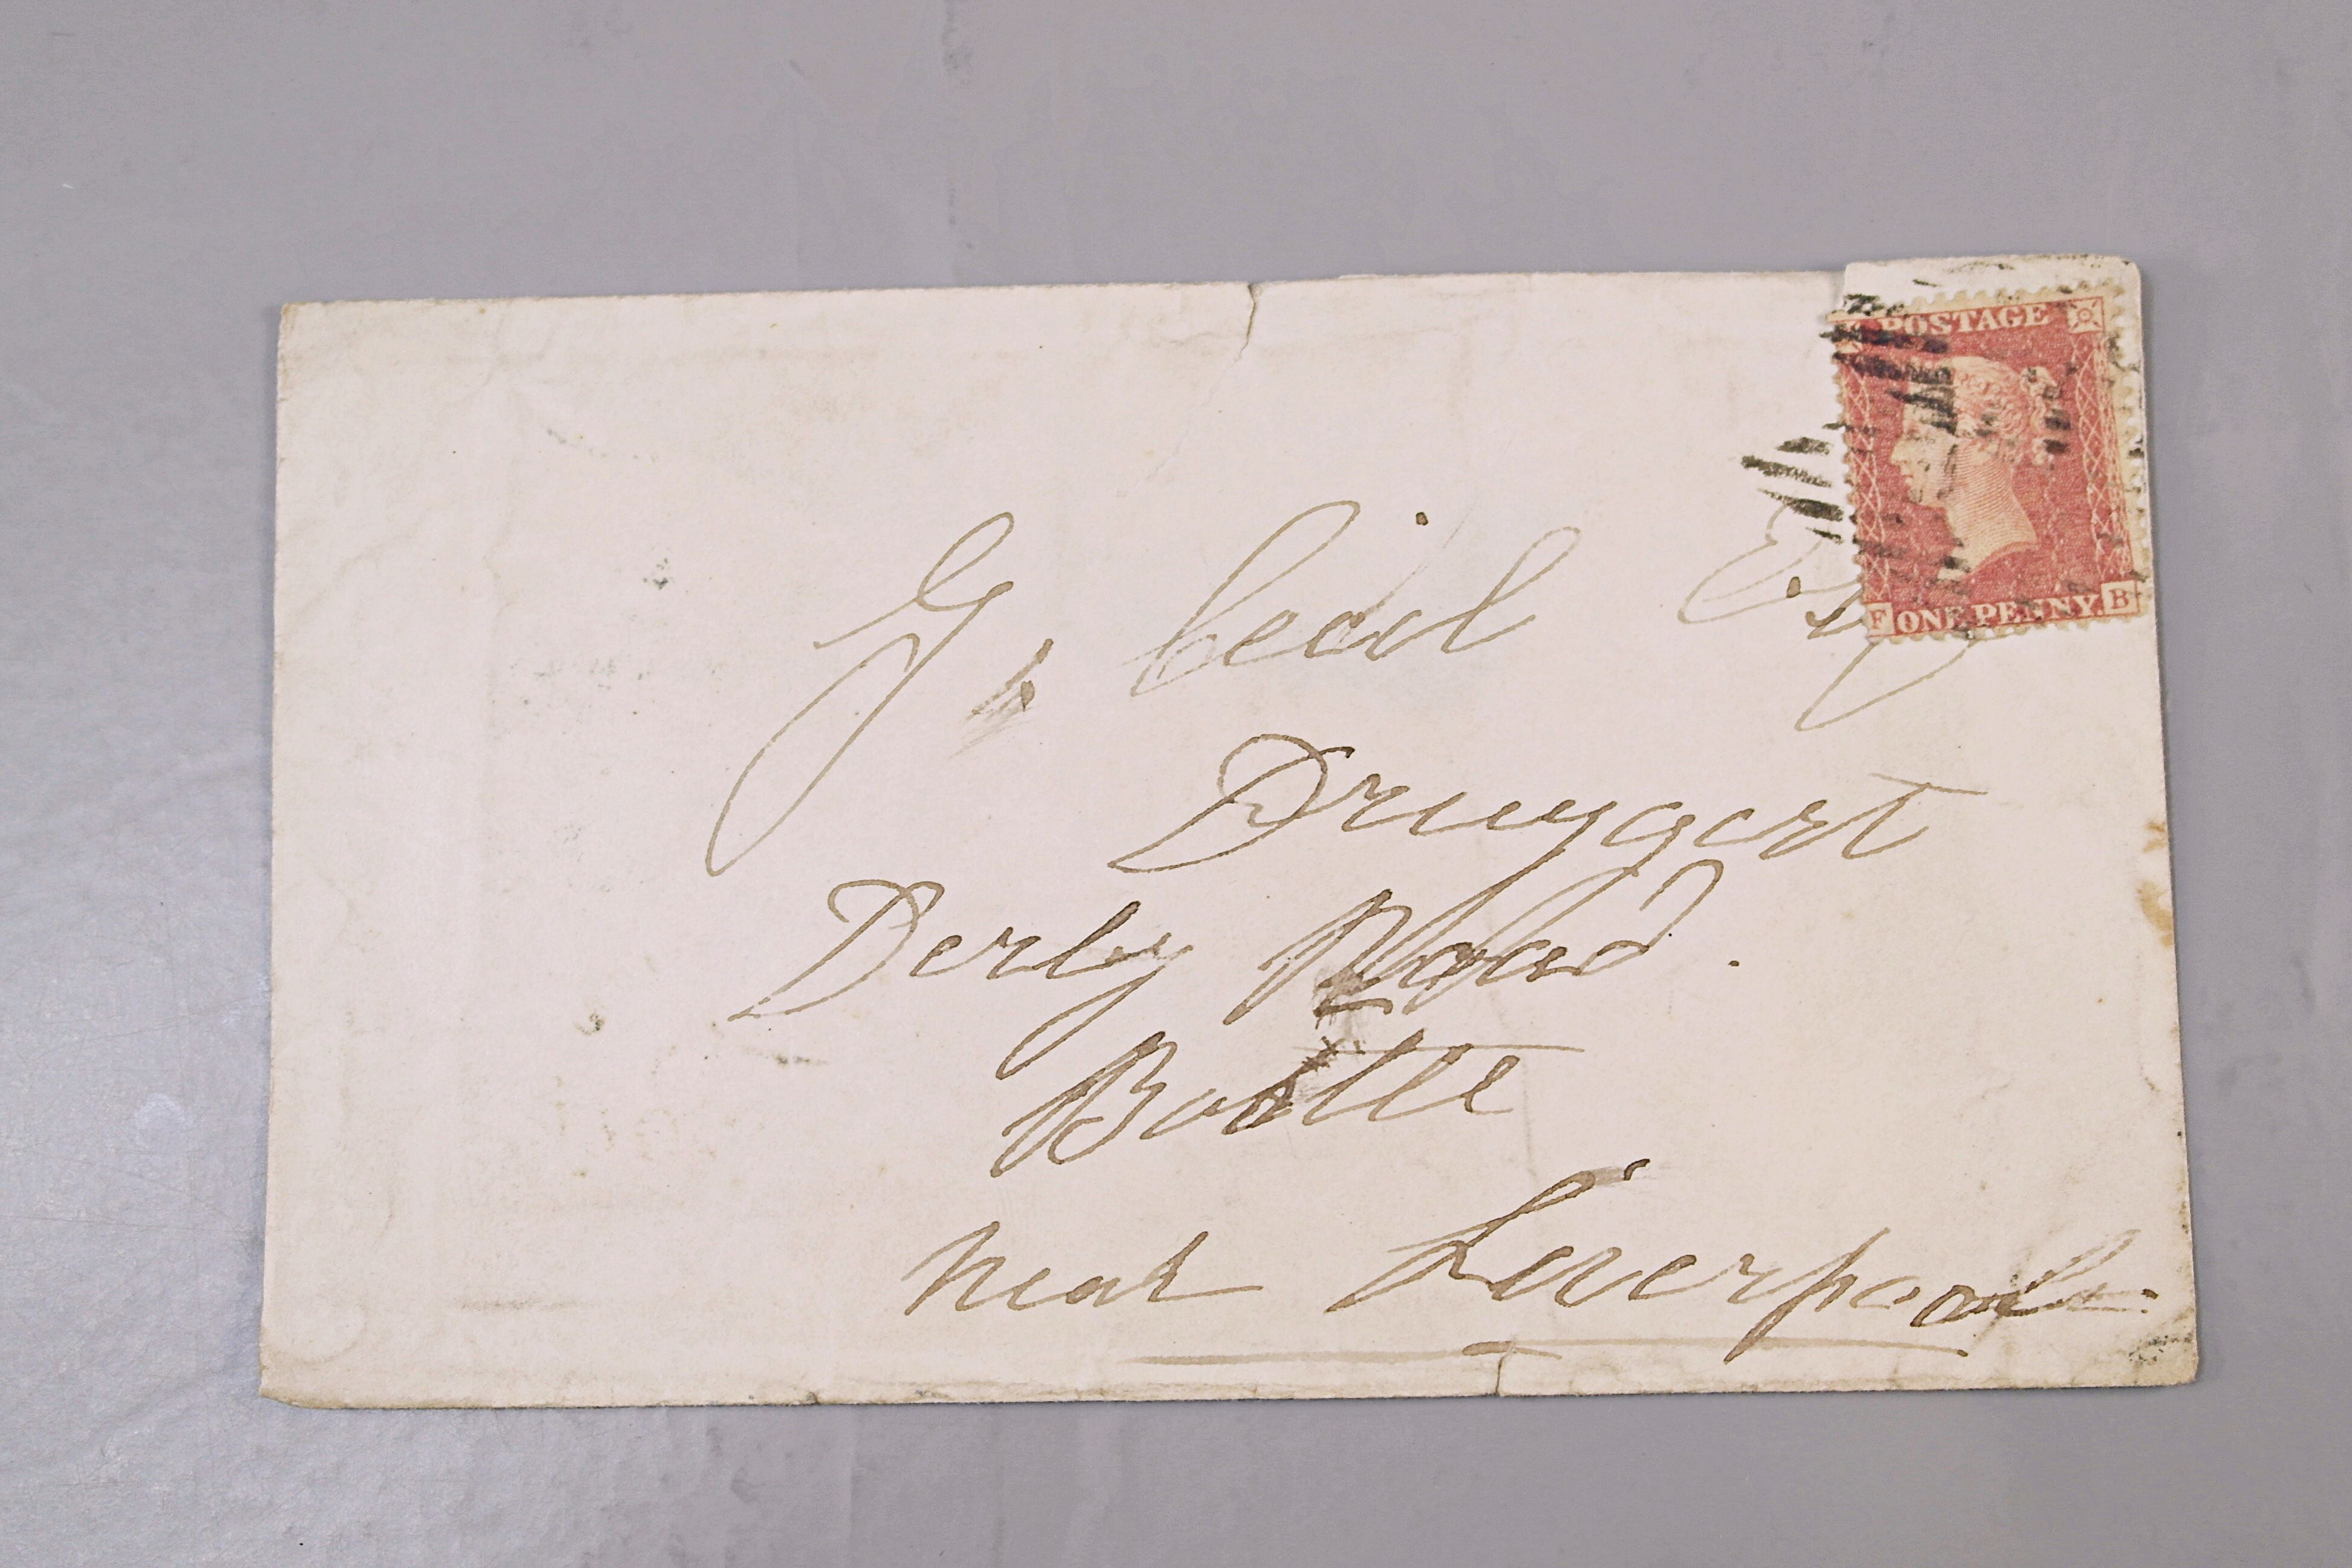 POSTAGE
ONE PENNY.
F B
G. Cecil Esq
Druggist
Derby Road.
Bootle
near Liverpool